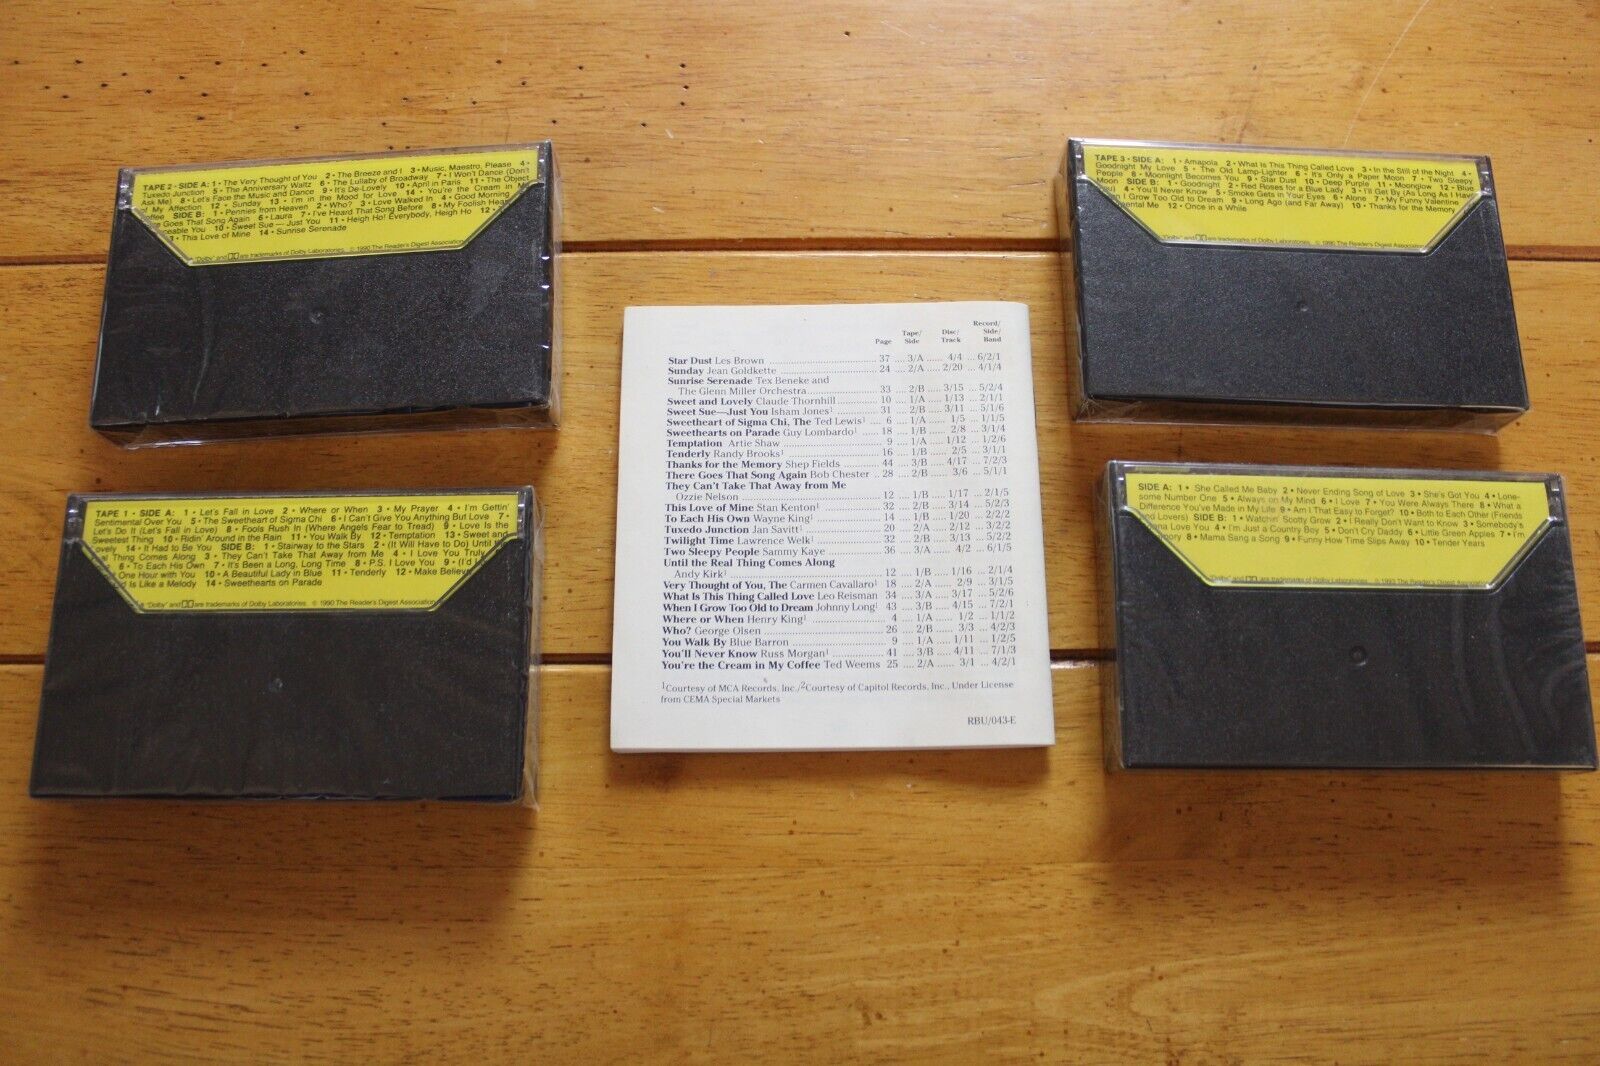 TAPE 2 • SIDE A: 1 • The Very Thought of You 2 • The Breeze and I 3 • Music, Maestro, Please 4 •
Tuxedo Junction 5 • The Anniversary Waltz 6 • The Lullaby of Broadway 7 • I Won't Dance (Don't
Ask Me) 8 • Let's Face the Music and Dance 9 • It's De-Lovely 10 • April in Paris 11 • The Object
of My Affection 12 • Sunday 13 • I'm in the Mood for Love 14 • You're the Cream in My
Coffee SIDE B: 1 • Pennies from Heaven 2 • Who? 3 • Love Walked In 4 • Good Morning
Goes That Song Again 6 • Laura 7 • I've Heard That Song Before 8 • My Foolish Heart
10 • Sweet Sue—Just You 11 • Heigh Ho! Everybody, Heigh Ho 12
• This Love of Mine 14 • Sunrise Serenade
"Dolby" and are trademarks of Dolby Laboratories. © 1990 The Reader's Digest Association
TAPE 3 • SIDE A: 1 • Amapola 2 • What Is This Thing Called Love 3 • In the Still of the Night 4 •
Goodnight My Love 5 • The Old Lamp-Lighter 6 • It's Only a Paper Moon 7 • Two Sleepy
People 8 • Moonlight Becomes You 9 • Star Dust 10 • Deep Purple 11 • Moonglow 12 • Blue
Moon SIDE B: 1 • Goodnight 2 • Red Roses for a Blue Lady 3 • I'll Get By (As Long As I Have
You) 4 • You'll Never Know 5 • Smoke Gets in Your Eyes 6 • Alone 7 • My Funny Valentine
I Grow Too Old to Dream 9 • Long Ago (and Far Away) 10 • Thanks for the Memory
Me 12 • Once in a While
"Dolby" and are trademarks of Dolby Laboratories. © 1990 The Reader's Digest Association
Page Tape/Side Disc/Track Record/Side/Band
Star Dust Les Brown 37 ... 3/A ... 4/4 ... 6/2/1
Sunday Jean Goldkette 24 ... 2/A ... 2/20 ... 4/1/4
Sunrise Serenade Tex Beneke and
The Glenn Miller Orchestra 33 ... 2/B ... 3/15 ... 5/2/4
Sweet and Lovely Claude Thornhill 10 ... 1/A ... 1/13 ... 2/1/1
Sweet Sue—Just You Isham Jones¹ 31 ... 2/B ... 3/11 ... 5/1/6
Sweetheart of Sigma Chi, The Ted Lewis¹ 6 ... 1/A ... 1/5 ... 1/1/5
Sweethearts on Parade Guy Lombardo¹ 18 ... 1/B ... 2/8 ... 3/1/4
Temptation Artie Shaw 9 ... 1/A ... 1/12 ... 1/2/6
Tenderly Randy Brooks¹ 16 ... 1/B ... 2/5 ... 3/1/1
Thanks for the Memory Shep Fields 44 ... 3/B ... 4/17 ... 7/2/3
There Goes That Song Again Bob Chester 28 ... 2/B ... 3/6 ... 5/1/1
They Can't Take That Away from Me
Ozzie Nelson 12 ... 1/B ... 1/17 ... 2/1/5
This Love of Mine Stan Kenton² 32 ... 2/B ... 3/14 ... 5/2/3
To Each His Own Wayne King¹ 14 ... 1/B ... 1/20 ... 2/2/2
Tuxedo Junction Jan Savitt¹ 20 ... 2/A ... 2/12 ... 3/2/2
Twilight Time Lawrence Welk¹ 32 ... 2/B ... 3/13 ... 5/2/2
Two Sleepy People Sammy Kaye 36 ... 3/A ... 4/2 ... 6/1/5
Until the Real Thing Comes Along
Andy Kirk¹ 12 ... 1/B ... 1/16 ... 2/1/4
Very Thought of You, The Carmen Cavallaro¹ 18 ... 2/A ... 2/9 ... 3/1/5
What Is This Thing Called Love Leo Reisman 34 ... 3/A ... 3/17 ... 5/2/6
When I Grow Too Old to Dream Johnny Long¹ 43 ... 3/B ... 4/15 ... 7/2/1
Where or When Henry King¹ 4 ... 1/A ... 1/2 ... 1/1/2
Who? George Olsen 26 ... 2/B ... 3/3 ... 4/2/3
You Walk By Blue Barron 9 ... 1/A ... 1/11 ... 1/2/5
You'll Never Know Russ Morgan¹ 41 ... 3/B ... 4/11 ... 7/1/3
You're the Cream in My Coffee Ted Weems 25 ... 2/A ... 3/1 ... 4/2/1
¹Courtesy of MCA Records, Inc./²Courtesy of Capitol Records, Inc., Under License
from CEMA Special Markets
RBU/043-E
TAPE 1 • SIDE A: 1 • Let's Fall in Love 2 • Where or When 3 • My Prayer 4 • I'm Gettin'
Sentimental Over You 5 • The Sweetheart of Sigma Chi 6 • I Can't Give You Anything But Love 7 •
Let's Do It (Let's Fall in Love) 8 • Fools Rush In (Where Angels Fear to Tread) 9 • Love Is the
Sweetest Thing 10 • Ridin' Around in the Rain 11 • You Walk By 12 • Temptation 13 • Sweet and
Lovely 14 • It Had to Be You SIDE B: 1 • Stairway to the Stars 2 • (It Will Have to Do) Until
Thing Comes Along 3 • They Can't Take That Away from Me 4 • I Love You Truly
6 • To Each His Own 7 • It's Been a Long, Long Time 8 • P.S. I Love You 9 • (I'd
One Hour with You 10 • A Beautiful Lady in Blue 11 • Tenderly 12 • Make Believe
Is Like a Melody 14 • Sweethearts on Parade
"Dolby" and are trademarks of Dolby Laboratories. © 1990 The Reader's Digest Association
SIDE A: 1 • She Called Me Baby 2 • Never Ending Song of Love 3 • She's Got You 4 • Lone-
some Number One 5 • Always on My Mind 6 • I Love 7 • You Were Always There 8 • What a
Difference You've Made in My Life 9 • Am I That Easy to Forget? 10 • Both to Each Other (Friends
and Lovers) SIDE B: 1 • Watchin' Scotty Grow 2 • I Really Don't Want to Know 3 • Somebody's
Love You 4 • I'm Just a Country Boy 5 • Don't Cry Daddy 6 • Little Green Apples 7 • I'm
8 • Mama Sang a Song 9 • Funny How Time Slips Away 10 • Tender Years
"Dolby" and are trademarks of Dolby Laboratories. © 1993 The Reader's Digest Association